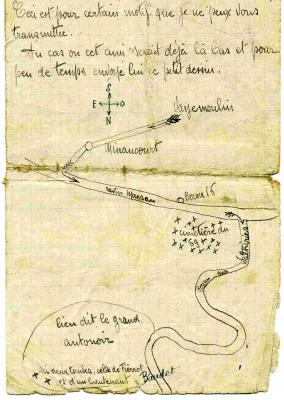 Ceci est pour certain motif que je ne peux vous
transmettre.
Au cas ou cet ami serait déjà là bas et pour
peu de temps envoie lui ce petit dessin.
S
E O
N
Vagemoulin
Minaucourt
ravin Marson
Borne 16
cimetière du
69
lieu dit le grand
entonnoir
deux tombes, celle de Pierrot
et d'un lieutenant